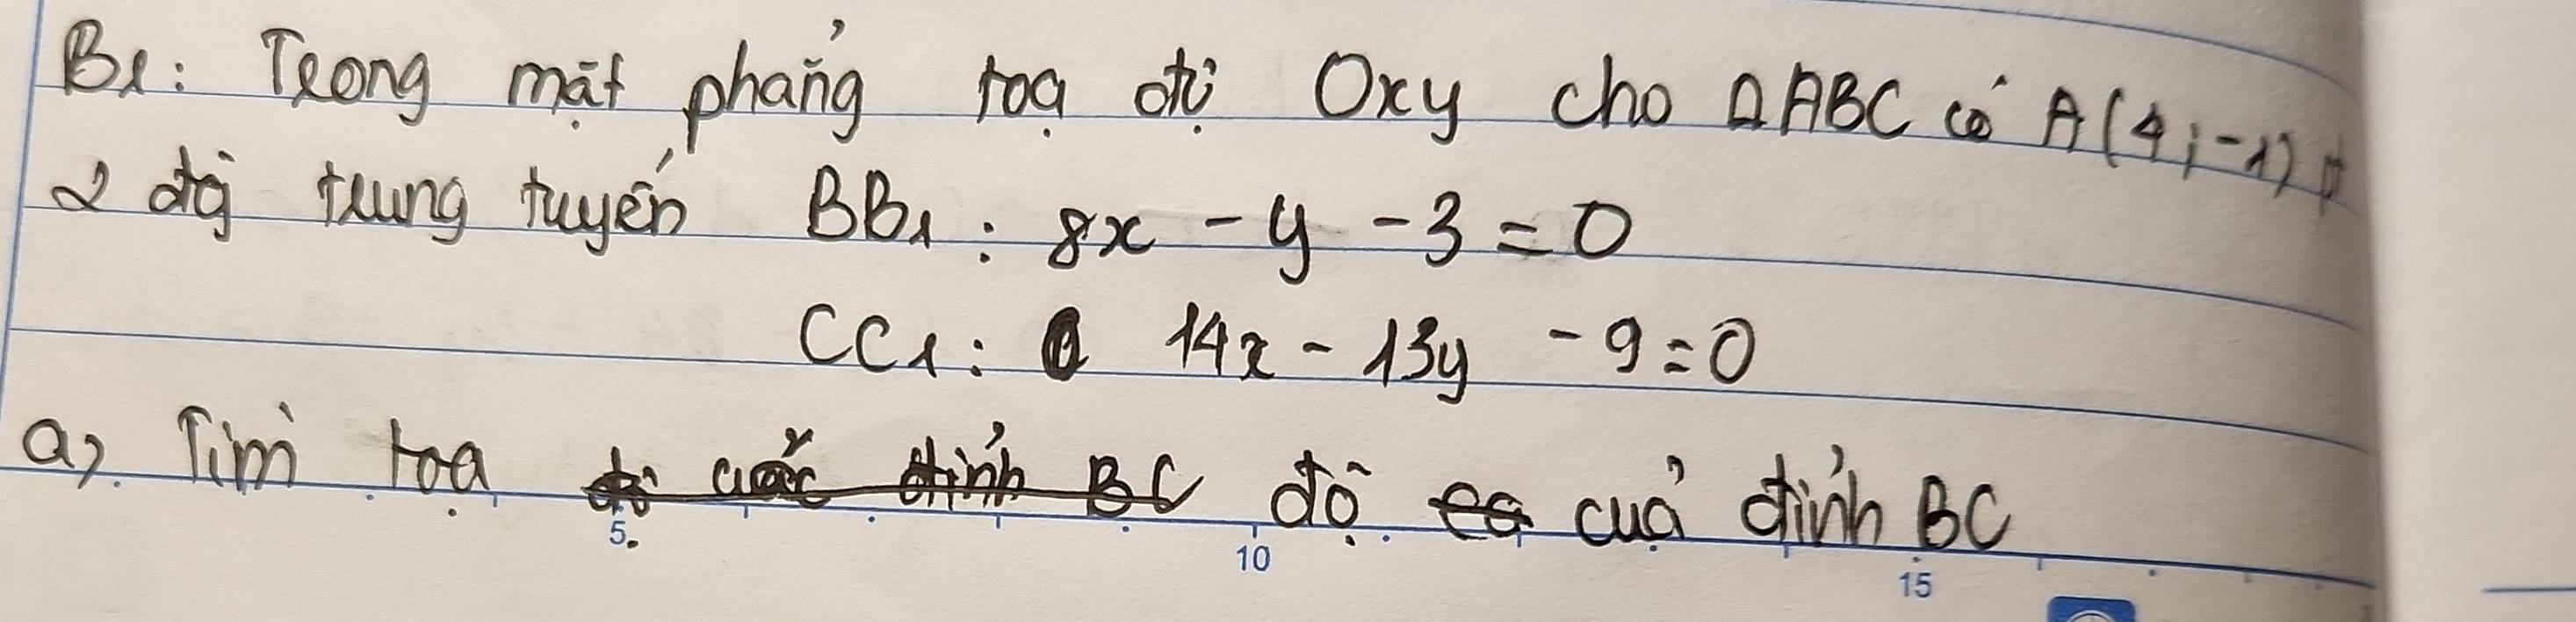 B1: Trong mặt phẳng toạ độ Oxy cho ΔABC có A(4;-1)
2 đg trung tuyến BB1: 8x - y - 3 = 0
CC1: 14x - 13y - 9 = 0
a, Tìm toạ độ của đỉnh BC
5
10
15